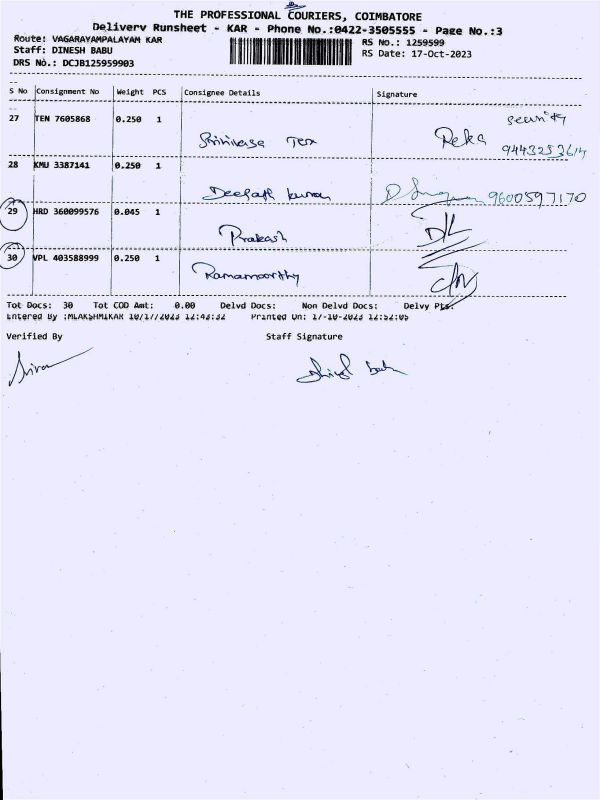 THE PROFESSIONAL COURIERS, COIMBATORE
Delivery Runsheet - KAR - Phone No.:0422-3505555 - Page No.:3
Route: VAGARAYAMPALAYAM KAR
RS No.: 1259599
Staff: DINESH BABU
RS Date: 17-Oct-2023
DRS No.: DCJB125959903
S No Consignment No Weight PCS Consignee Details Signature
27 TEN 7605868 0.250 1
Security
Srinivasa Tex Reka
9443253614
28 KMU 3387141 0.250 1
Deepath kumar 9600597170
29 HRD 360099576 0.045 1
Prakash
30 VPL 403588999 0.250 1
Ramamoorthy
Tot Docs: 30 Tot COD Amt: 0.00 Delvd Docs: Non Delvd Docs: Delvy Pts:
Entered By :MLAKSHMIKAR 10/17/2023 12:43:32 Printed On: 17-10-2023 12:52:05
Verified By Staff Signature